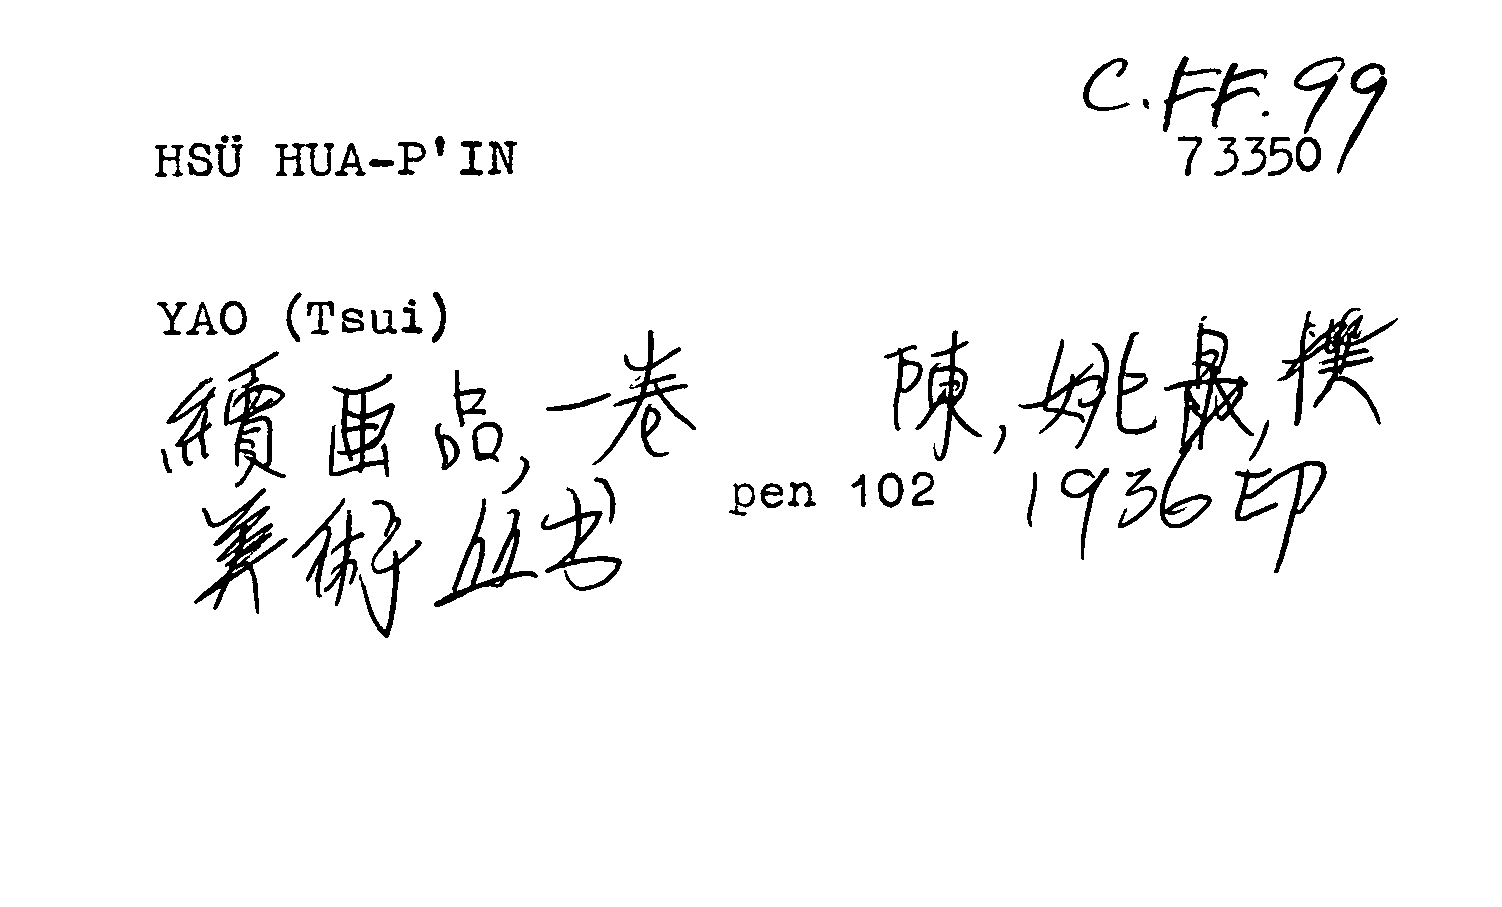 C.FF.99
HSÜ HUA-P'IN
73350
YAO (Tsui)
續画品,一卷 陳,姚最,撰
美術丛书 pen 102 1936印